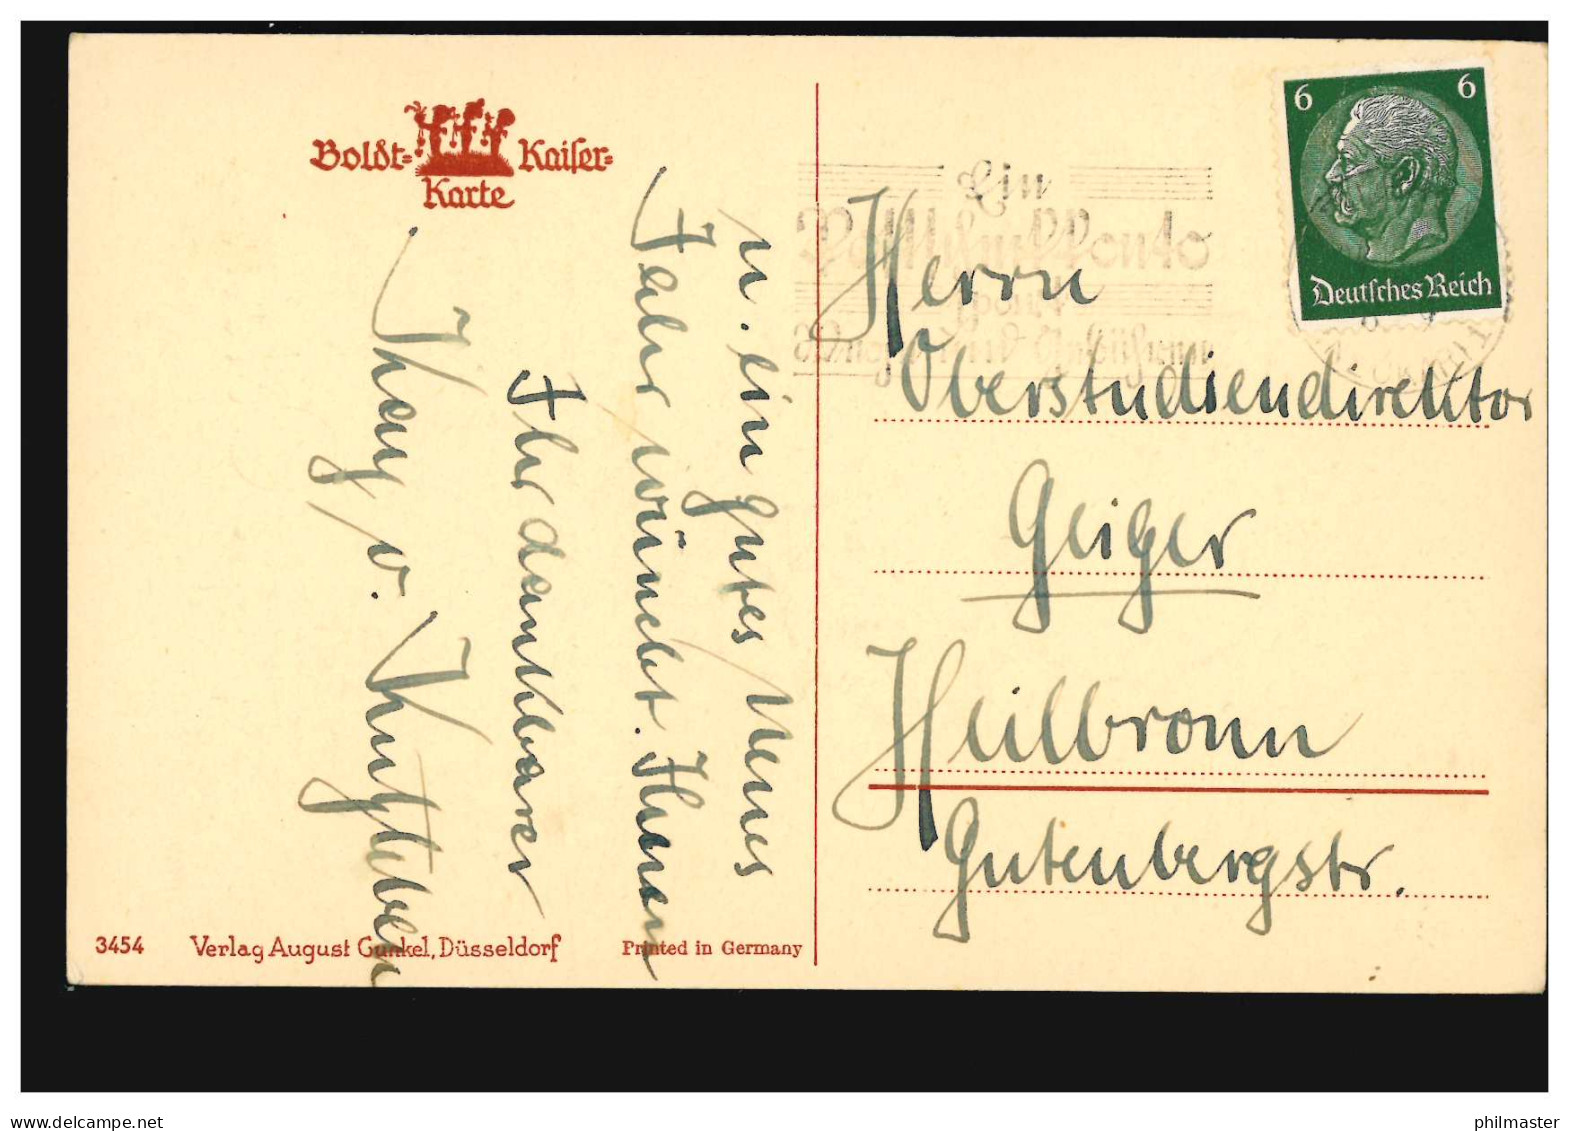 Boldt=Kaiser=
Karte
u. ein gutes Neues
Jahr wünscht Ihnen
Ihr dankbarer
3454 Verlag August Gunkel, Düsseldorf Printed in Germany
6 6
Deutsches Reich
Ein
Postscheckkonto
spart
Herrn
Oberstudiendirektor
Geiger
Heilbronn
Gutenbergstr.
www.delcampe.net
philmaster